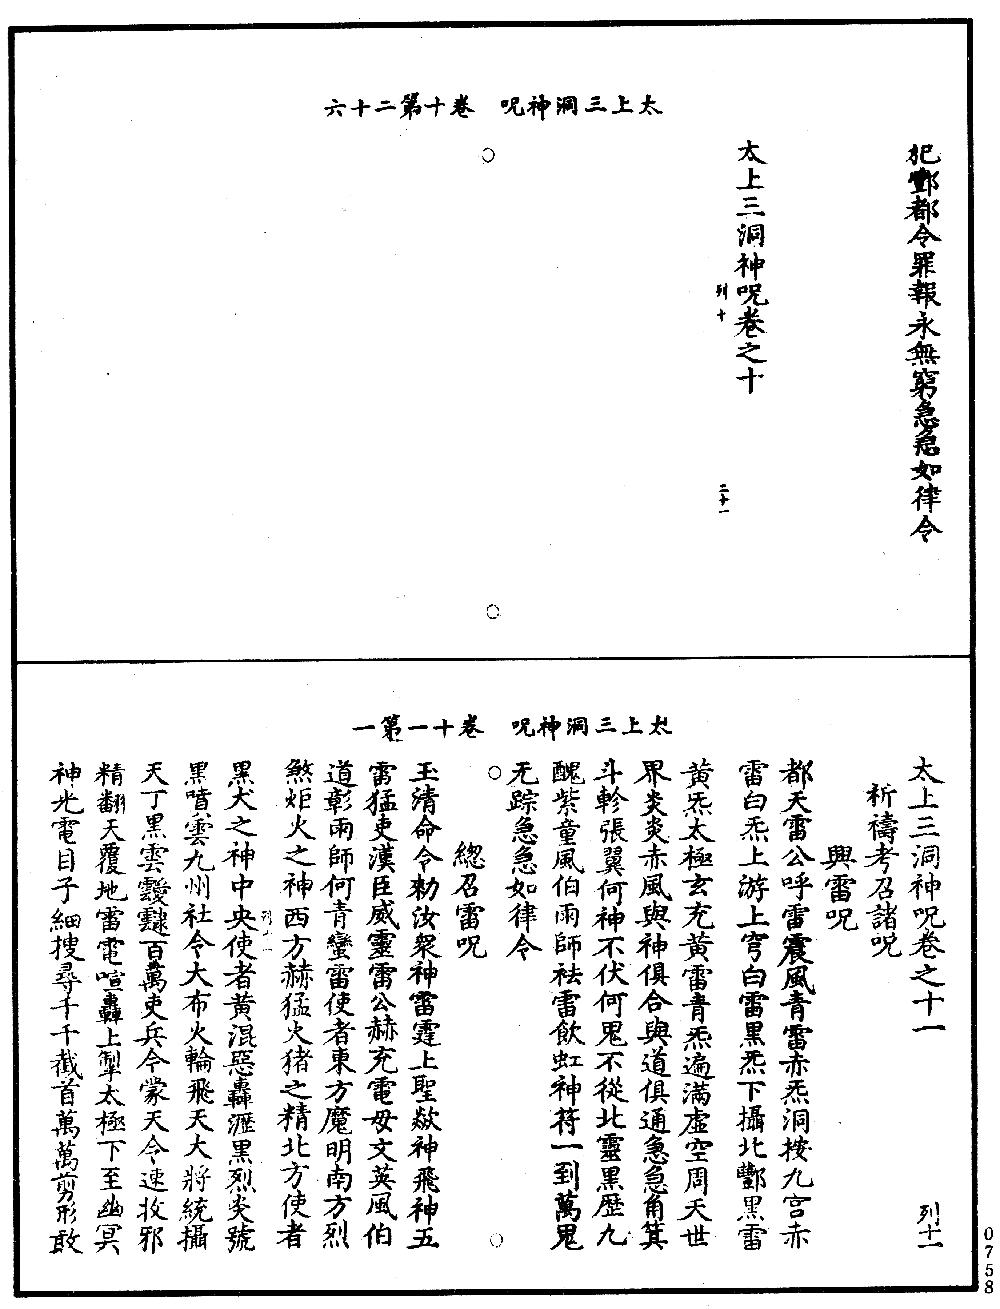 太上三洞神呪　卷十第二十六
犯酆都令罪報永無窮急急如律令
太上三洞神呪卷之十
列十
二十一
太上三洞神呪　卷十一第一
太上三洞神呪卷之十一　列十一
祈禱考召諸呪
興雷呪
都天雷公呼雷震風青雷赤炁洞按九宮赤
雷白炁上游上穹白雷黑炁下攝北酆黑雷
黃炁太極玄充黃雷青炁遍滿虛空周天世
界炎炎赤風與神俱合與道俱通急急角箕
斗軫張翼何神不伏何鬼不從北靈黑歷九
醜紫童風伯雨師袪雷飲虹神符一到萬鬼
无踪急急如律令
總召雷呪
玉清命令勑汝眾神雷霆上聖歘神飛神五
雷猛吏漢臣威靈雷公赫充電母文英風伯
道彰雨師何青蠻雷使者東方魔明南方烈
煞炬火之神西方赫猛火猪之精北方使者
黑犬之神中央使者黃混惡轟瀝黑烈炎號
列十一
黑噴雲九州社令大布火輪飛天大將統攝
天丁黑雲靉靆百萬吏兵今蒙天令速收邪
精翻天覆地雷電喧轟上掣太極下至幽冥
神光電目子細搜尋千千截首萬萬剪形敢
0758